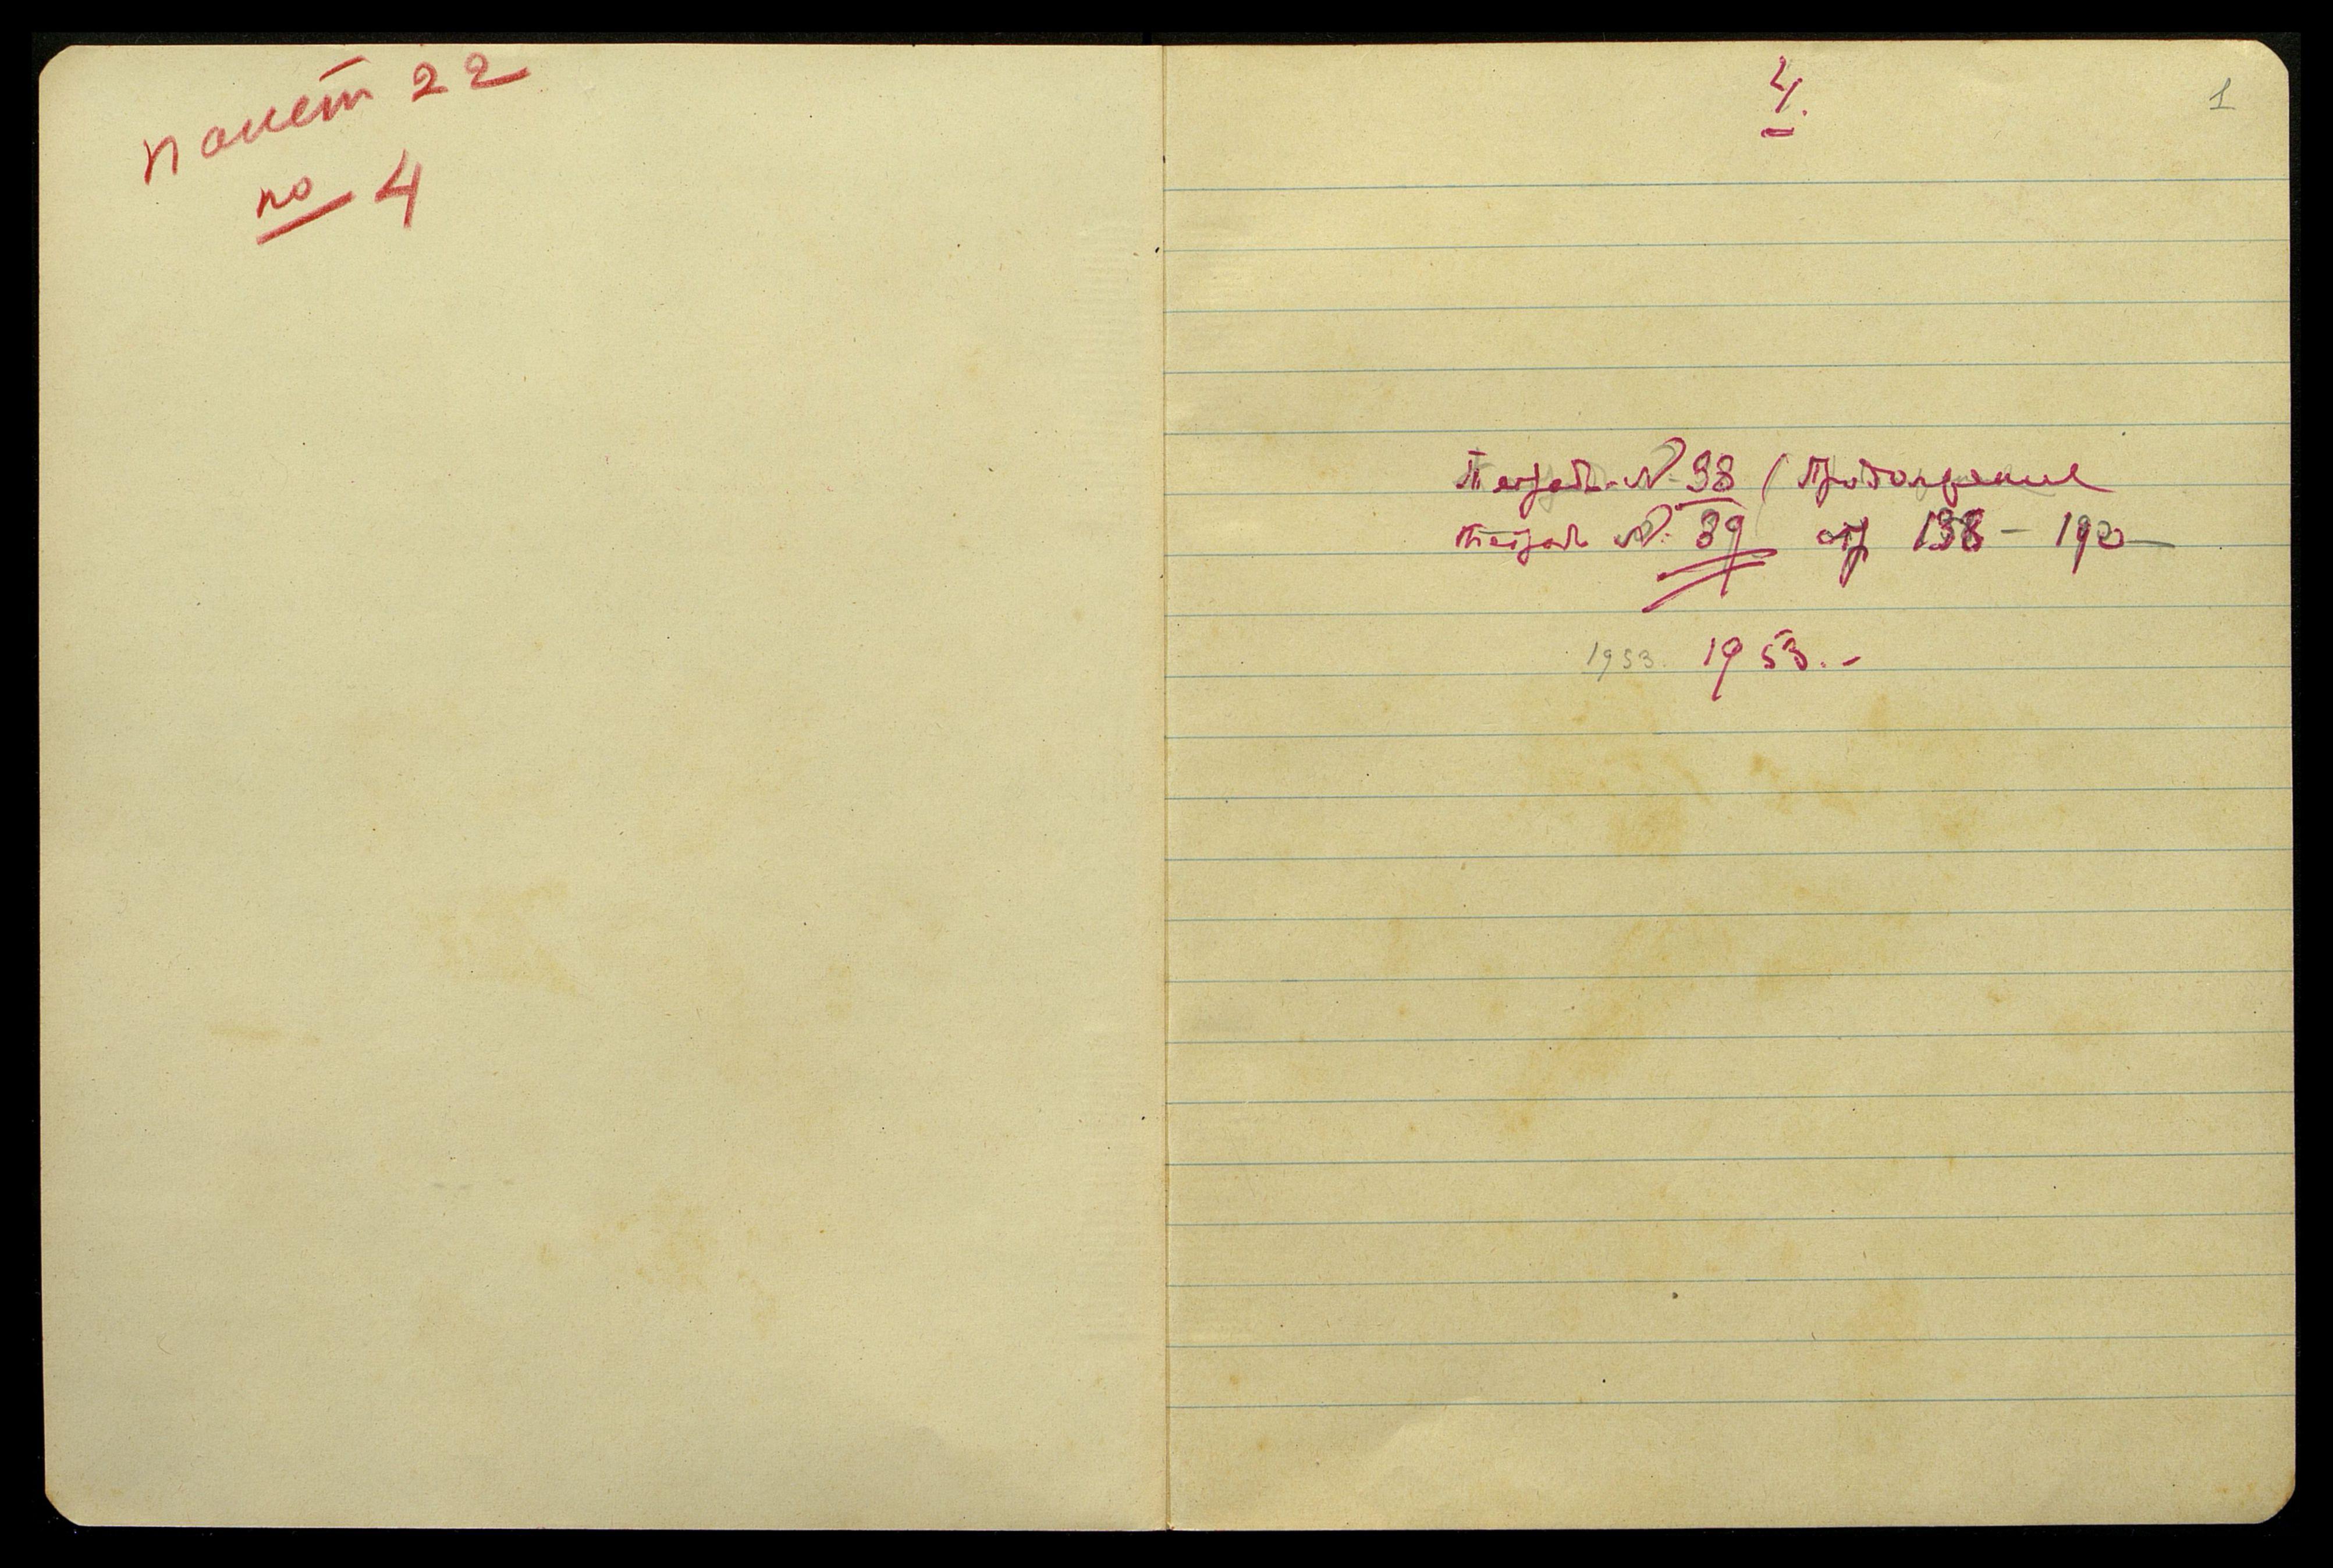 пакет 22
no 4
4.
1
Тетрадь N. 38 (Продолжение
Тетрадь N: 39 стр 138 – 192
1953. 1953. –